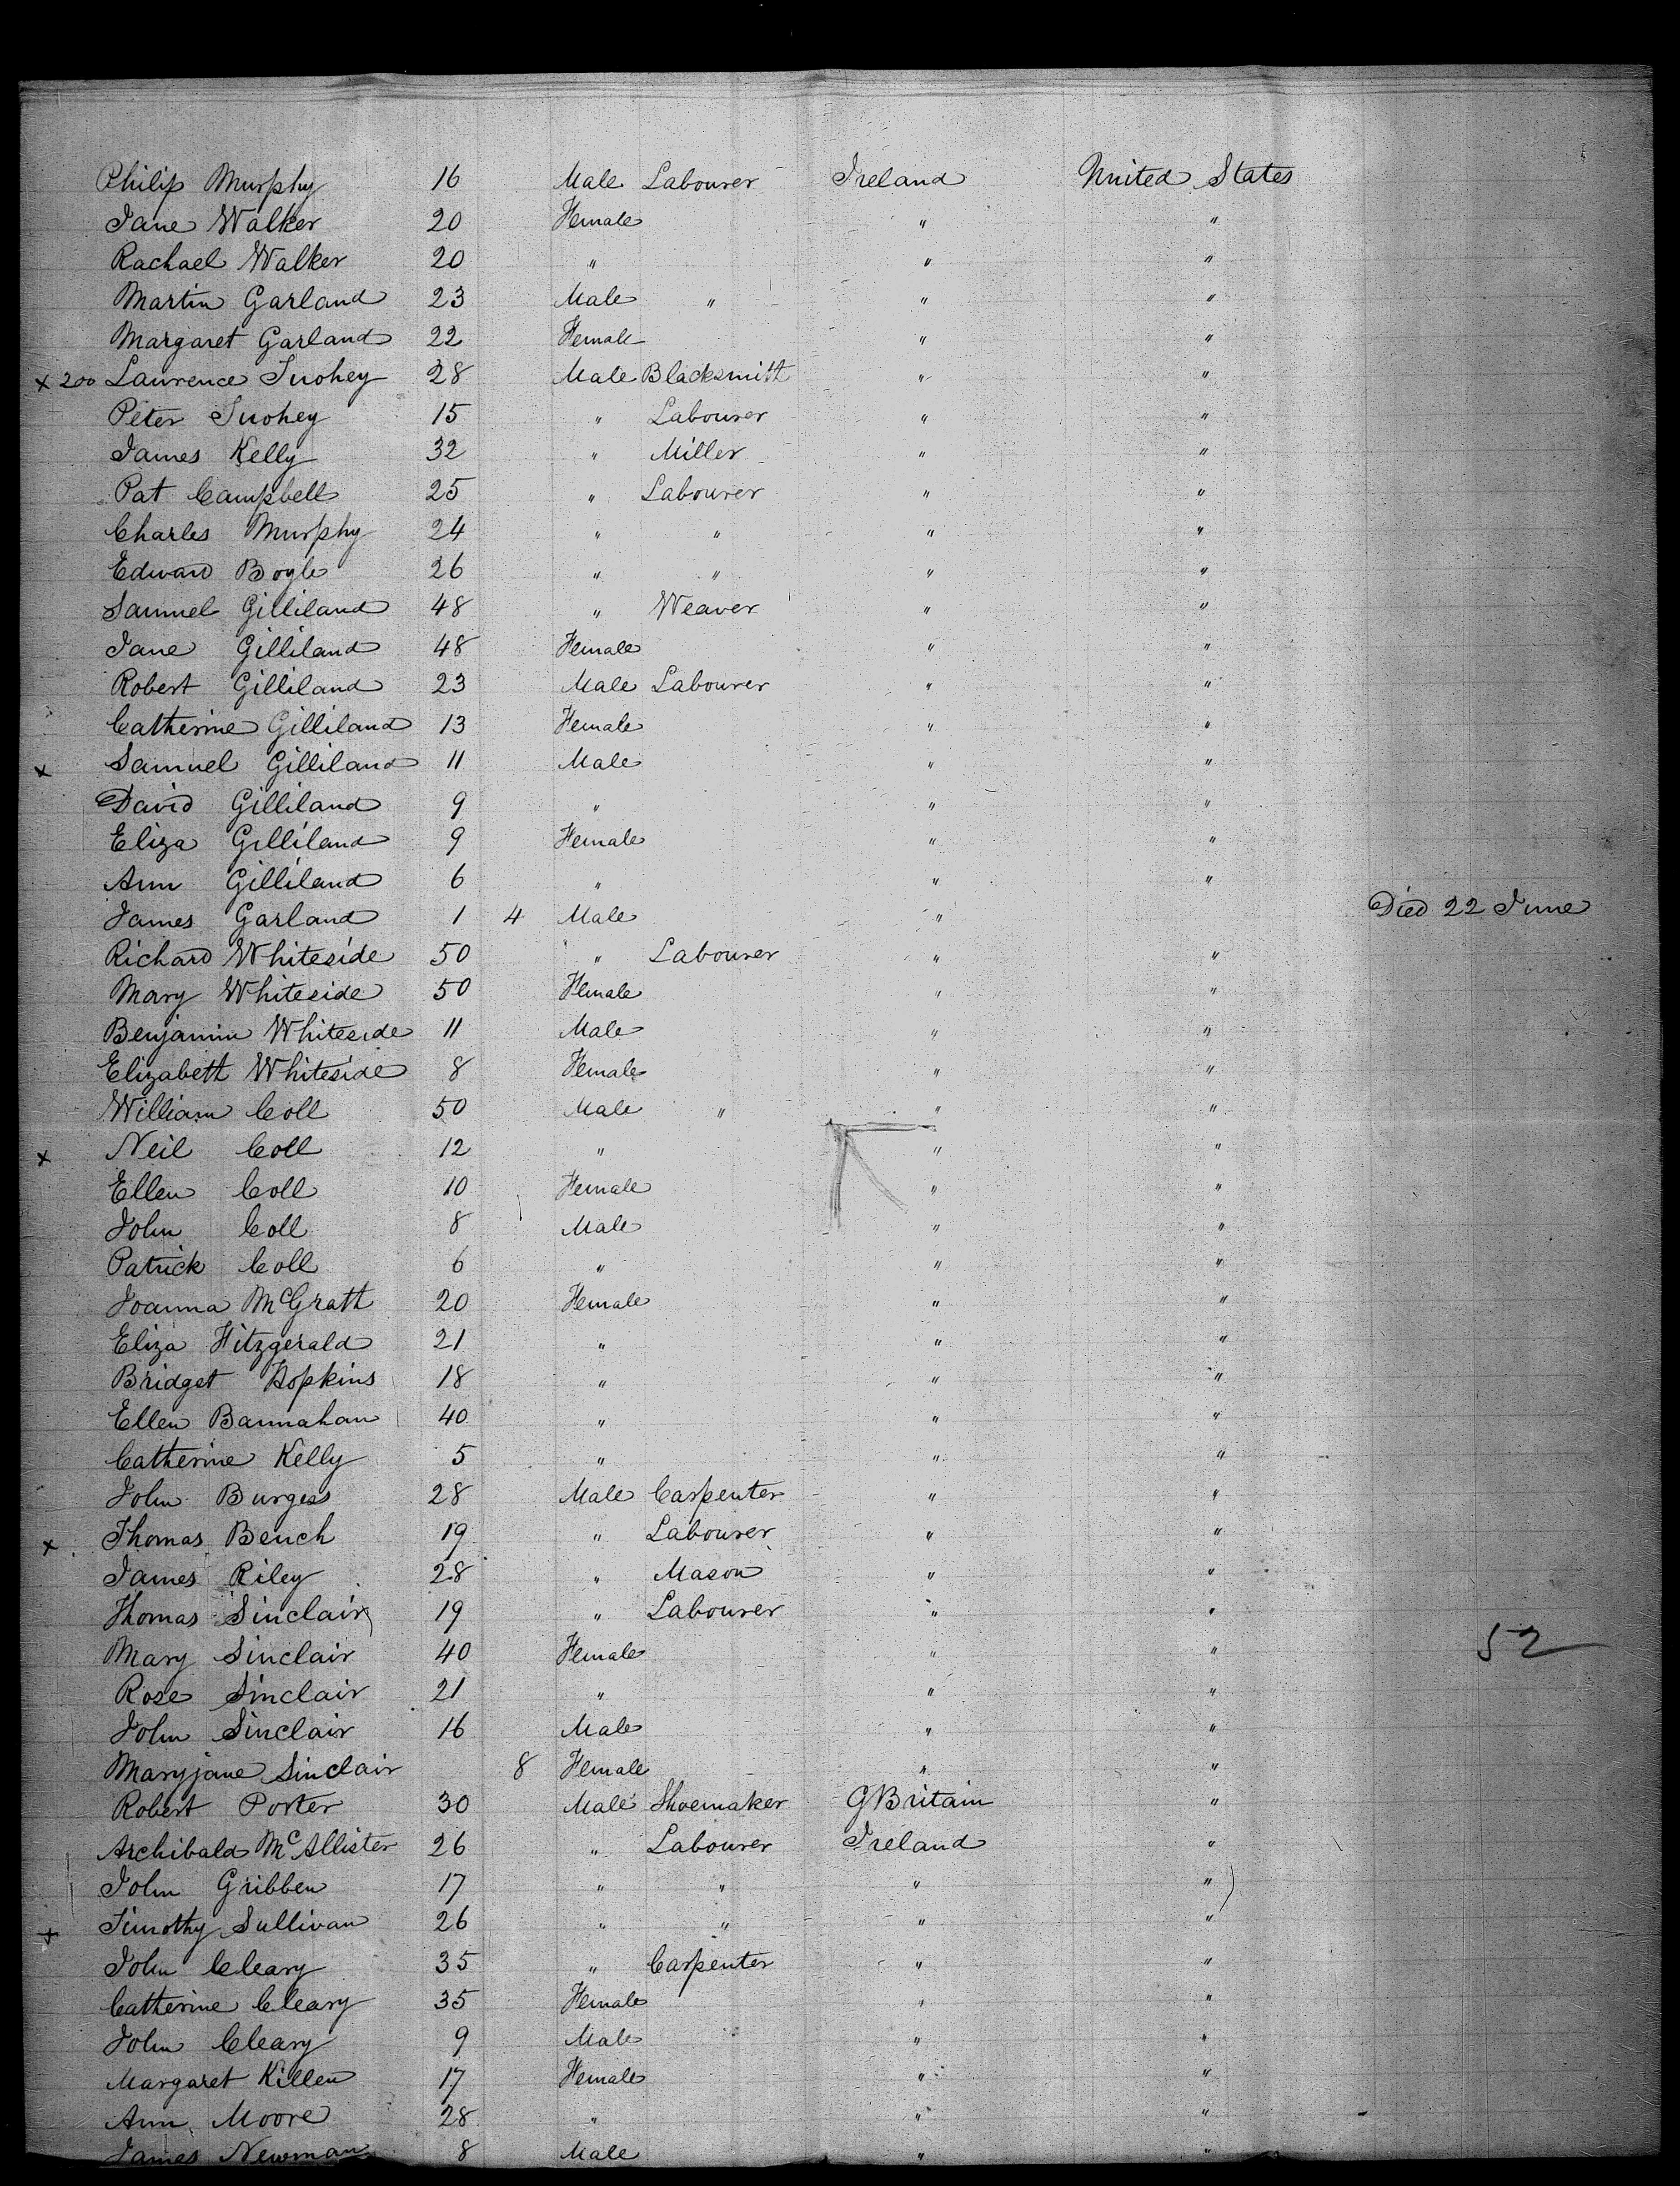 Philip Murphy 16 Male Labourer Ireland United States
Jane Walker 20 Female " "
Rachael Walker 20 " " "
Martin Garland 23 Male " " "
Margaret Garland 22 Female " "
x 200 Laurence Tuohey 28 Male Blacksmith " "
Peter Tuohey 15 " Labourer " "
James Kelly 32 " Miller " "
Pat Campbell 25 " Labourer " "
Charles Murphy 24 " " " "
Edward Boyle 26 " " " "
Samuel Gilliland 48 " Weaver " "
Jane Gilliland 48 Female " "
Robert Gilliland 23 Male Labourer " "
Catherine Gilliland 13 Female " "
x Samuel Gilliland 11 Male " "
David Gilliland 9 " " "
Eliza Gilliland 9 Female " "
Ann Gilliland 6 " " "
James Garland 1 4 Male " Died 22 June
Richard Whiteside 50 " Labourer " "
Mary Whiteside 50 Female " "
Benjamin Whiteside 11 Male " "
Elizabeth Whiteside 8 Female " "
William Coll 50 Male " " "
x Neil Coll 12 " " "
Ellen Coll 10 Female " "
John Coll 8 Male " "
Patrick Coll 6 " " "
Joanna McGrath 20 Female " "
Eliza Fitzgerald 21 " " "
Bridget Hopkins 18 " " "
Ellen Bannahan 40 " " "
Catherine Kelly 5 " " "
John Burgess 28 Male Carpenter " "
x Thomas Bench 19 " Labourer " "
James Riley 28 " Mason " "
Thomas Sinclair 19 " Labourer " "
Mary Sinclair 40 Female " " 52
Rose Sinclair 21 " " "
John Sinclair 16 Male " "
Maryjane Sinclair 8 Female " "
Robert Porter 30 Male Shoemaker GBritain "
Archibald McAllister 26 " Labourer Ireland "
John Gribben 17 " " " "
x Timothy Sullivan 26 " " " "
John Cleary 35 " Carpenter " "
Catherine Cleary 35 Female " "
John Cleary 9 Male " "
Margaret Killen 17 Female " "
Ann Moore 28 " " "
James Newman 8 Male " "